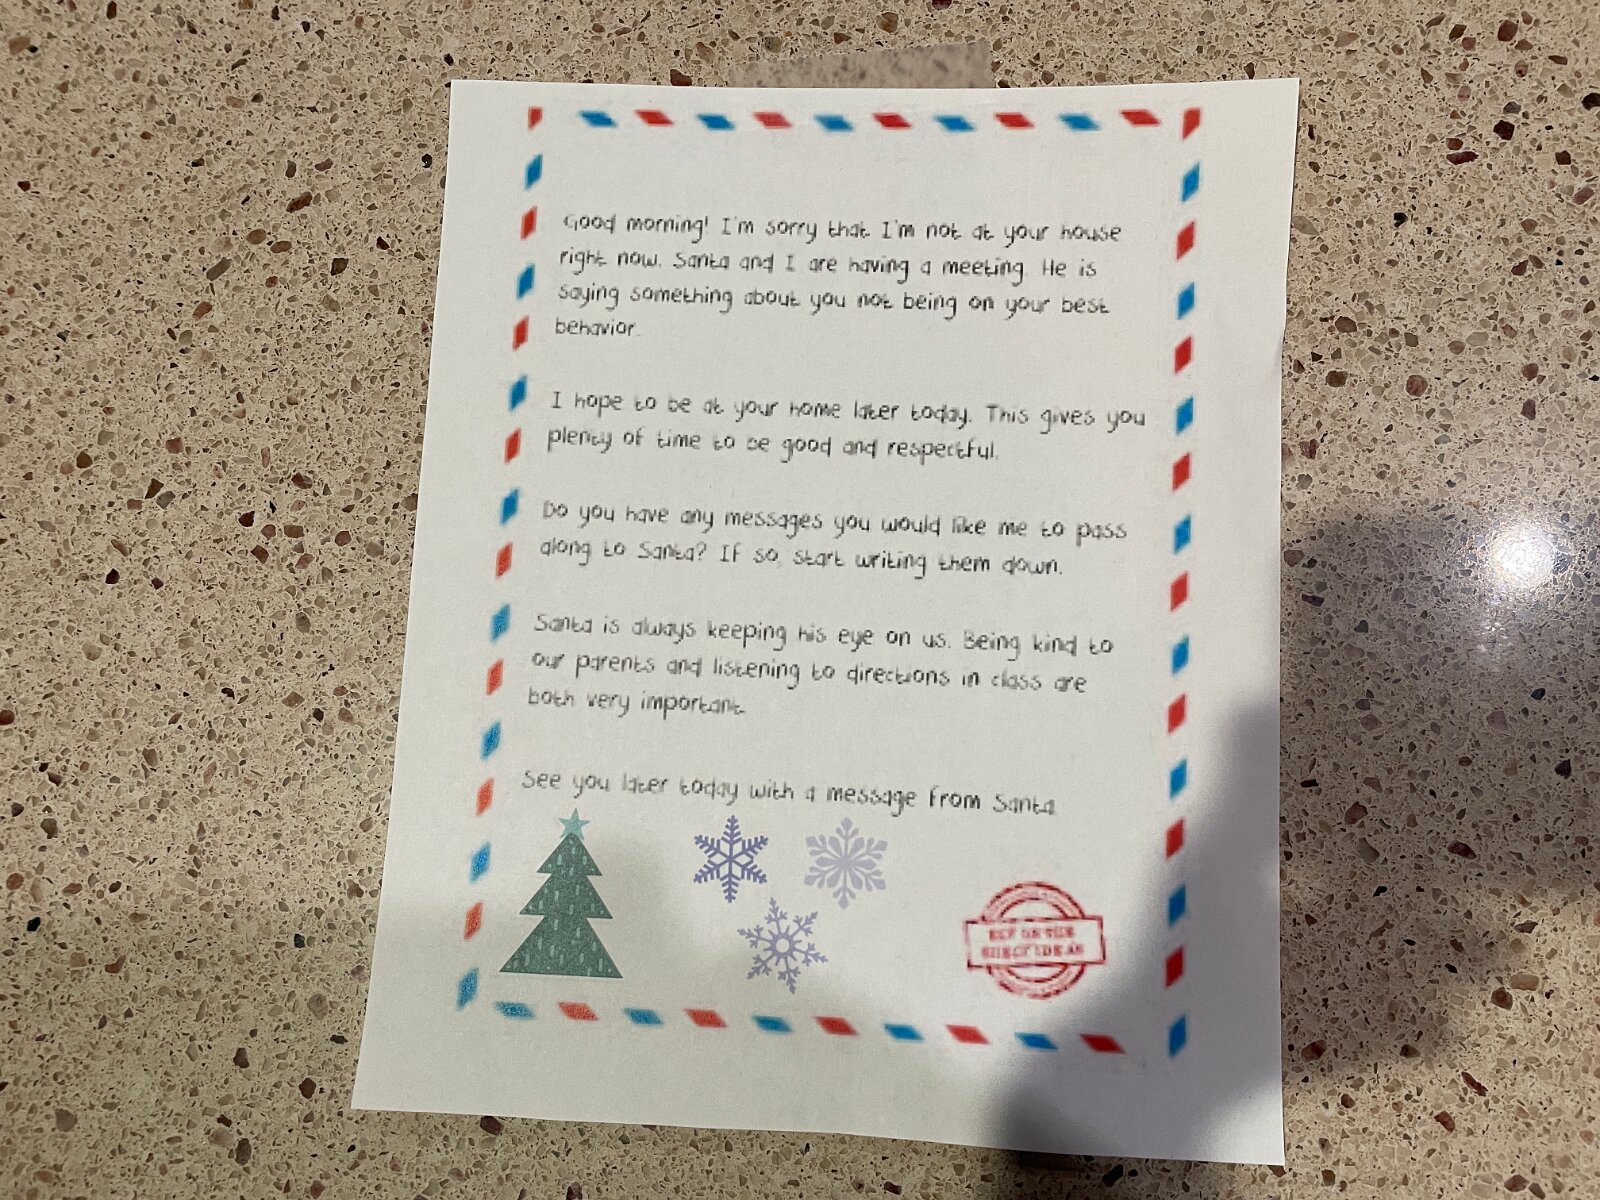 Good morning! I'm sorry that I'm not at your house
right now. Santa and I are having a meeting. He is
saying something about you not being on your best
behavior.
I hope to be at your home later today. This gives you
plenty of time to be good and respectful.
Do you have any messages you would like me to pass
along to Santa? If so, start writing them down.
Santa is always keeping his eye on us. Being kind to
our parents and listening to directions in class are
both very important.
See you later today with a message from Santa.
ELF ON THE
SHELF IDEAS